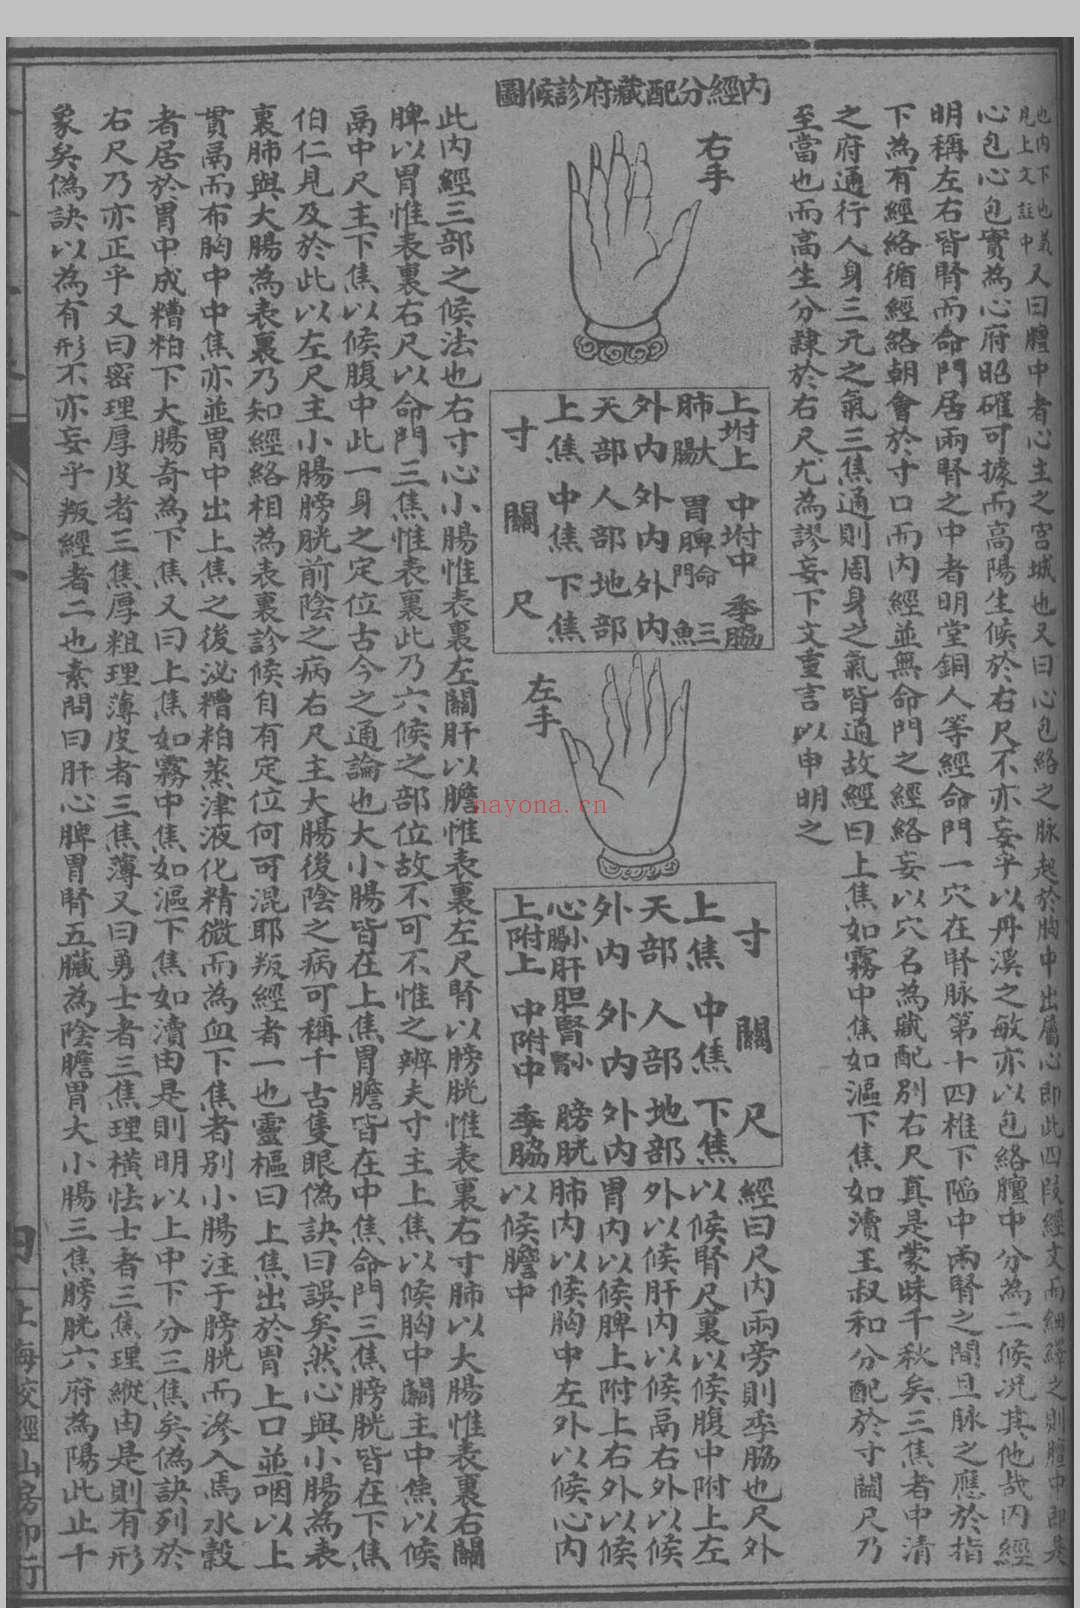 也內下也義
見上文註中
又曰膻中者心主之宮城也又曰心包絡之脉起於胸中出屬心即此四段經文而細繹之則膻中即是
心包心包實為心府昭確可據而高陽生候於右尺不亦妄乎以丹溪之敏亦以包絡膻中分為二候况其他哉內經
明稱左右皆腎而命門居兩腎之中者明堂銅人等經命門一穴在脊脉第十四椎下陷中兩腎之間且脉之應於指
下為有經絡循經絡朝會於寸口而內經並無命門之經絡妄以穴名為臟配別右尺真是蒙昧千秋矣三焦者中清
之府通行人身三元之氣三焦通則周身之氣皆通故經曰上焦如霧中焦如漚下焦如瀆王叔和分配於寸關尺乃
至當也而高生分隸於右尺尤為謬妄下文重言以申明之
內經分配藏府診候圖
右手
上坿上 中坿中 季脇
肺大腸 胃脾 命門 三魚
外內 外內 外內
天部 人部 地部
上焦 中焦 下焦
寸 關 尺
左手
寸 關 尺
上焦 中焦 下焦
天部 人部 地部
外內 外內 外內
心小腸 肝胆 腎小腎 膀胱
上附上 中附中 季脇
經曰尺內兩旁則季脇也尺外
以候腎尺裏以候腹中附上左
外以候肝內以候鬲右外以候
胃內以候脾上附上右外以候
肺內以候胸中左外以候心內
以候膻中
此內經三部之候法也右寸心小腸惟表裏左關肝以膽惟表裏左尺腎以膀胱惟表裏右寸肺以大腸惟表裏右關
脾以胃惟表裏右尺以命門三焦惟表裏此乃六候之部位故不可不惟之辨夫寸主上焦以候胸中關主中焦以候
鬲中尺主下焦以候腹中此一身之定位古今之通論也大小腸皆在上焦胃膽皆在中焦命門三焦膀胱皆在下焦
伯仁見及於此以左尺主小腸膀胱前陰之病右尺主大腸後陰之病可稱千古隻眼偽訣曰誤矣然心與小腸為表
裏肺與大腸為表裏乃知經絡相為表裏診候自有定位何可混耶叛經者一也靈樞曰上焦出於胃上口並咽以上
貫鬲而布胸中中焦亦並胃中出上焦之後泌糟粕蒸津液化精微而為血下焦者別小腸注于膀胱而滲入焉水穀
者居於胃中成糟粕下大腸奇為下焦又曰上焦如霧中焦如漚下焦如瀆由是則明以上中下分三焦矣偽訣列於
右尺乃亦正乎又曰密理厚皮者三焦厚粗理薄皮者三焦薄又曰勇士者三焦理橫怯士者三焦理縱由是則有形
象矣偽訣以為有形不亦妄乎叛經者二也素問曰肝心脾胃腎五臟為陰膽胃大小腸三焦膀胱六府為陽此止十
四
上海校經山房印行
nayona.cn